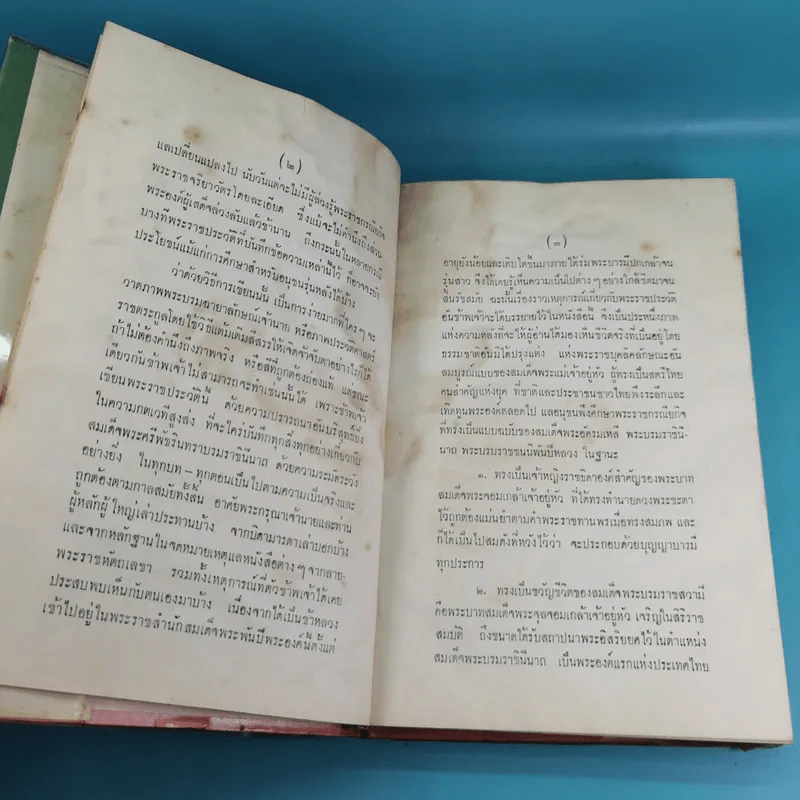 (๒)
แลเปลี่ยนแปลงไป นับวันแต่จะไม่มีผู้ล่วงรู้พระราชกรณียกิจ
พระราชจริยาวัตรโดยละเอียด ซึ่งแม้จะไม่คำนึงถึงส่วน
พระองค์ผู้เสด็จล่วงลับแล้วช้านาน ถึงกระนั้นในหลายกรณี
บางทีพระราชประวัติที่บันทึกข้อความเหล่านี้ไว้ ก็อาจจะยัง
ประโยชน์แม้แก่การศึกษาสำหรับอนุชนรุ่นหลังได้บ้าง
ว่าด้วยวิธีการเขียนนั้น เป็นการง่ายมากที่ใครๆ จะ
วาดภาพพระบรมฉายาลักษณ์เจ้านาย หรือภาพประวัติศาสตร์
ราชตระกูลโดยใช้วิธีแต้มเติมสีสรรให้เจิดจ้าจับตาอย่างไรก็ได้
ถ้าไม่ต้องคำนึงถึงภาพจริง หรือสีที่ถูกต้องถ่องแท้ แต่ขณะ
เดียวกันข้าพเจ้าไม่สามารถจะทำเช่นนั้นได้ เพราะข้าพเจ้า
เขียนพระราชประวัตินี้ ด้วยความปรารถนาอันบริสุทธิ์ยิ่ง
ในความกตเวทีสูงส่ง ที่จะใคร่บันทึกทุกสิ่งทุกอย่างเกี่ยวกับ
สมเด็จพระศรีพัชรินทราบรมราชินีนาถ ด้วยความระมัดระวัง
อย่างยิ่ง ในทุกบท–ทุกตอนเป็นไปตามความเป็นจริงและ
ถูกต้องตามกาลสมัยทั้งสิ้น อาศัยพระกรุณาเจ้านายและท่าน
ผู้หลักผู้ใหญ่เล่าประทานบ้าง จากบิดามารดาเล่าบอกบ้าง
และจากหลักฐานในจดหมายเหตุแลหนังสือต่างๆ จากลาย-
พระราชหัตถเลขา รวมทั้งเหตุการณ์ที่ตัวข้าพเจ้าได้เคย
ประสบพบเห็นกับตนเองมาบ้าง เนื่องจากได้เป็นข้าหลวง
เข้าไปอยู่ในพระราชสำนักสมเด็จพระพันปีพระองค์นั้นตั้งแต่
(๓)
อายุยังน้อยและเติบโตขึ้นมาภายใต้ร่มพระบารมีปกเกล้าจน
รุ่นสาว จึงได้เคยรู้เห็นความเป็นไปต่างๆ อย่างใกล้ชิดมาจน
สิ้นรัชสมัย ฉะนั้นเรื่องราวเหตุการณ์เกี่ยวกับพระราชประวัติ
อันข้าพเจ้าจะได้บรรยายไว้ในหนังสือนี้ จึงเป็นประหนึ่งภาพ
แห่งความหลังที่จะให้ผู้อ่านได้มองเห็นชีวิตจริงที่เป็นอยู่โดย
ธรรมชาติอันมิได้ปรุงแต่ง แห่งพระราชบุคลิคลักษณะอัน
สมบูรณ์แบบของสมเด็จพระแม่เจ้าอยู่หัว ผู้ทรงเป็นสตรีไทย
คนสำคัญแห่งยุค ที่ชาติและประชาชนชาวไทยพึงระลึกและ
เทิดทูนพระองค์ตลอดไป แลอนุชนพึงศึกษาพระราชกรณียกิจ
ที่ทรงเป็นแบบฉบับของสมเด็จพระอัครมเหสี พระบรมราชินี-
นาถ พระบรมราชชนนีพันปีหลวง ในฐานะ
๑. ทรงเป็นเจ้าหญิงราชธิดาองค์สำคัญของพระบาท
สมเด็จพระจอมเกล้าเจ้าอยู่หัว ที่ได้ทรงทำนายดวงพระชะตา
ไว้ถูกต้องแม่นยำตามคำพระราชทานพรเมื่อทรงสมภพ และ
ก็ได้เป็นไปสมดังที่หวังไว้ว่า จะประกอบด้วยบุญญาบารมี
ทุกประการ
๒. ทรงเป็นขวัญชีวิตของสมเด็จพระบรมราชสวามี
คือพระบาทสมเด็จพระจุลจอมเกล้าเจ้าอยู่หัว เจริญในสิริราช
สมบัติ ถึงขนาดได้รับสถาปนาพระอิสริยยศไว้ในตำแหน่ง
สมเด็จพระบรมราชินีนาถ เป็นพระองค์แรกแห่งประเทศไทย